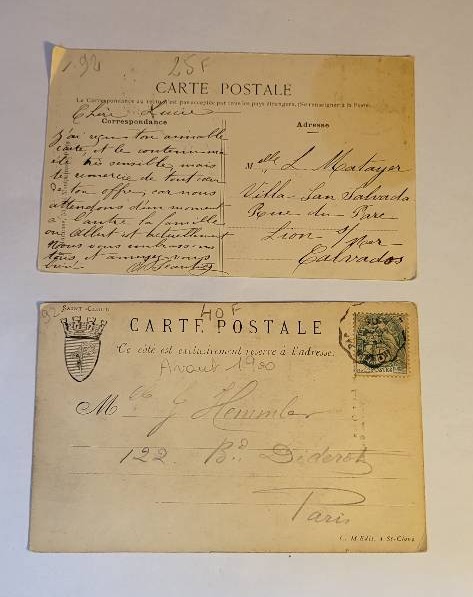 1.92
25F
CARTE POSTALE
La Correspondance au recto n'est pas acceptée par tous les pays étrangers. (Se renseigner à la Poste
Chère Lucie
Correspondance
Adresse
J'ai reçu ton aimable
carte, et le contenu m'a
été très sensible, mais
te remercie de tout cœur
ton offre, car nous
attendons d'un moment
à l'autre la famille
Albert et
Nous vous embrassons
tous, et
Melle L Matayer
Villa San Salvada
Rue du Parc
Lion s/ Mer
Calvados
SAINT-CLOUD
40F
CARTE POSTALE
Ce côté est exclusivement réservé à l'adresse.
Avant 1900
M G Hemmler
122 Bd Diderot
Paris
C. M Edit. à St-Cloud